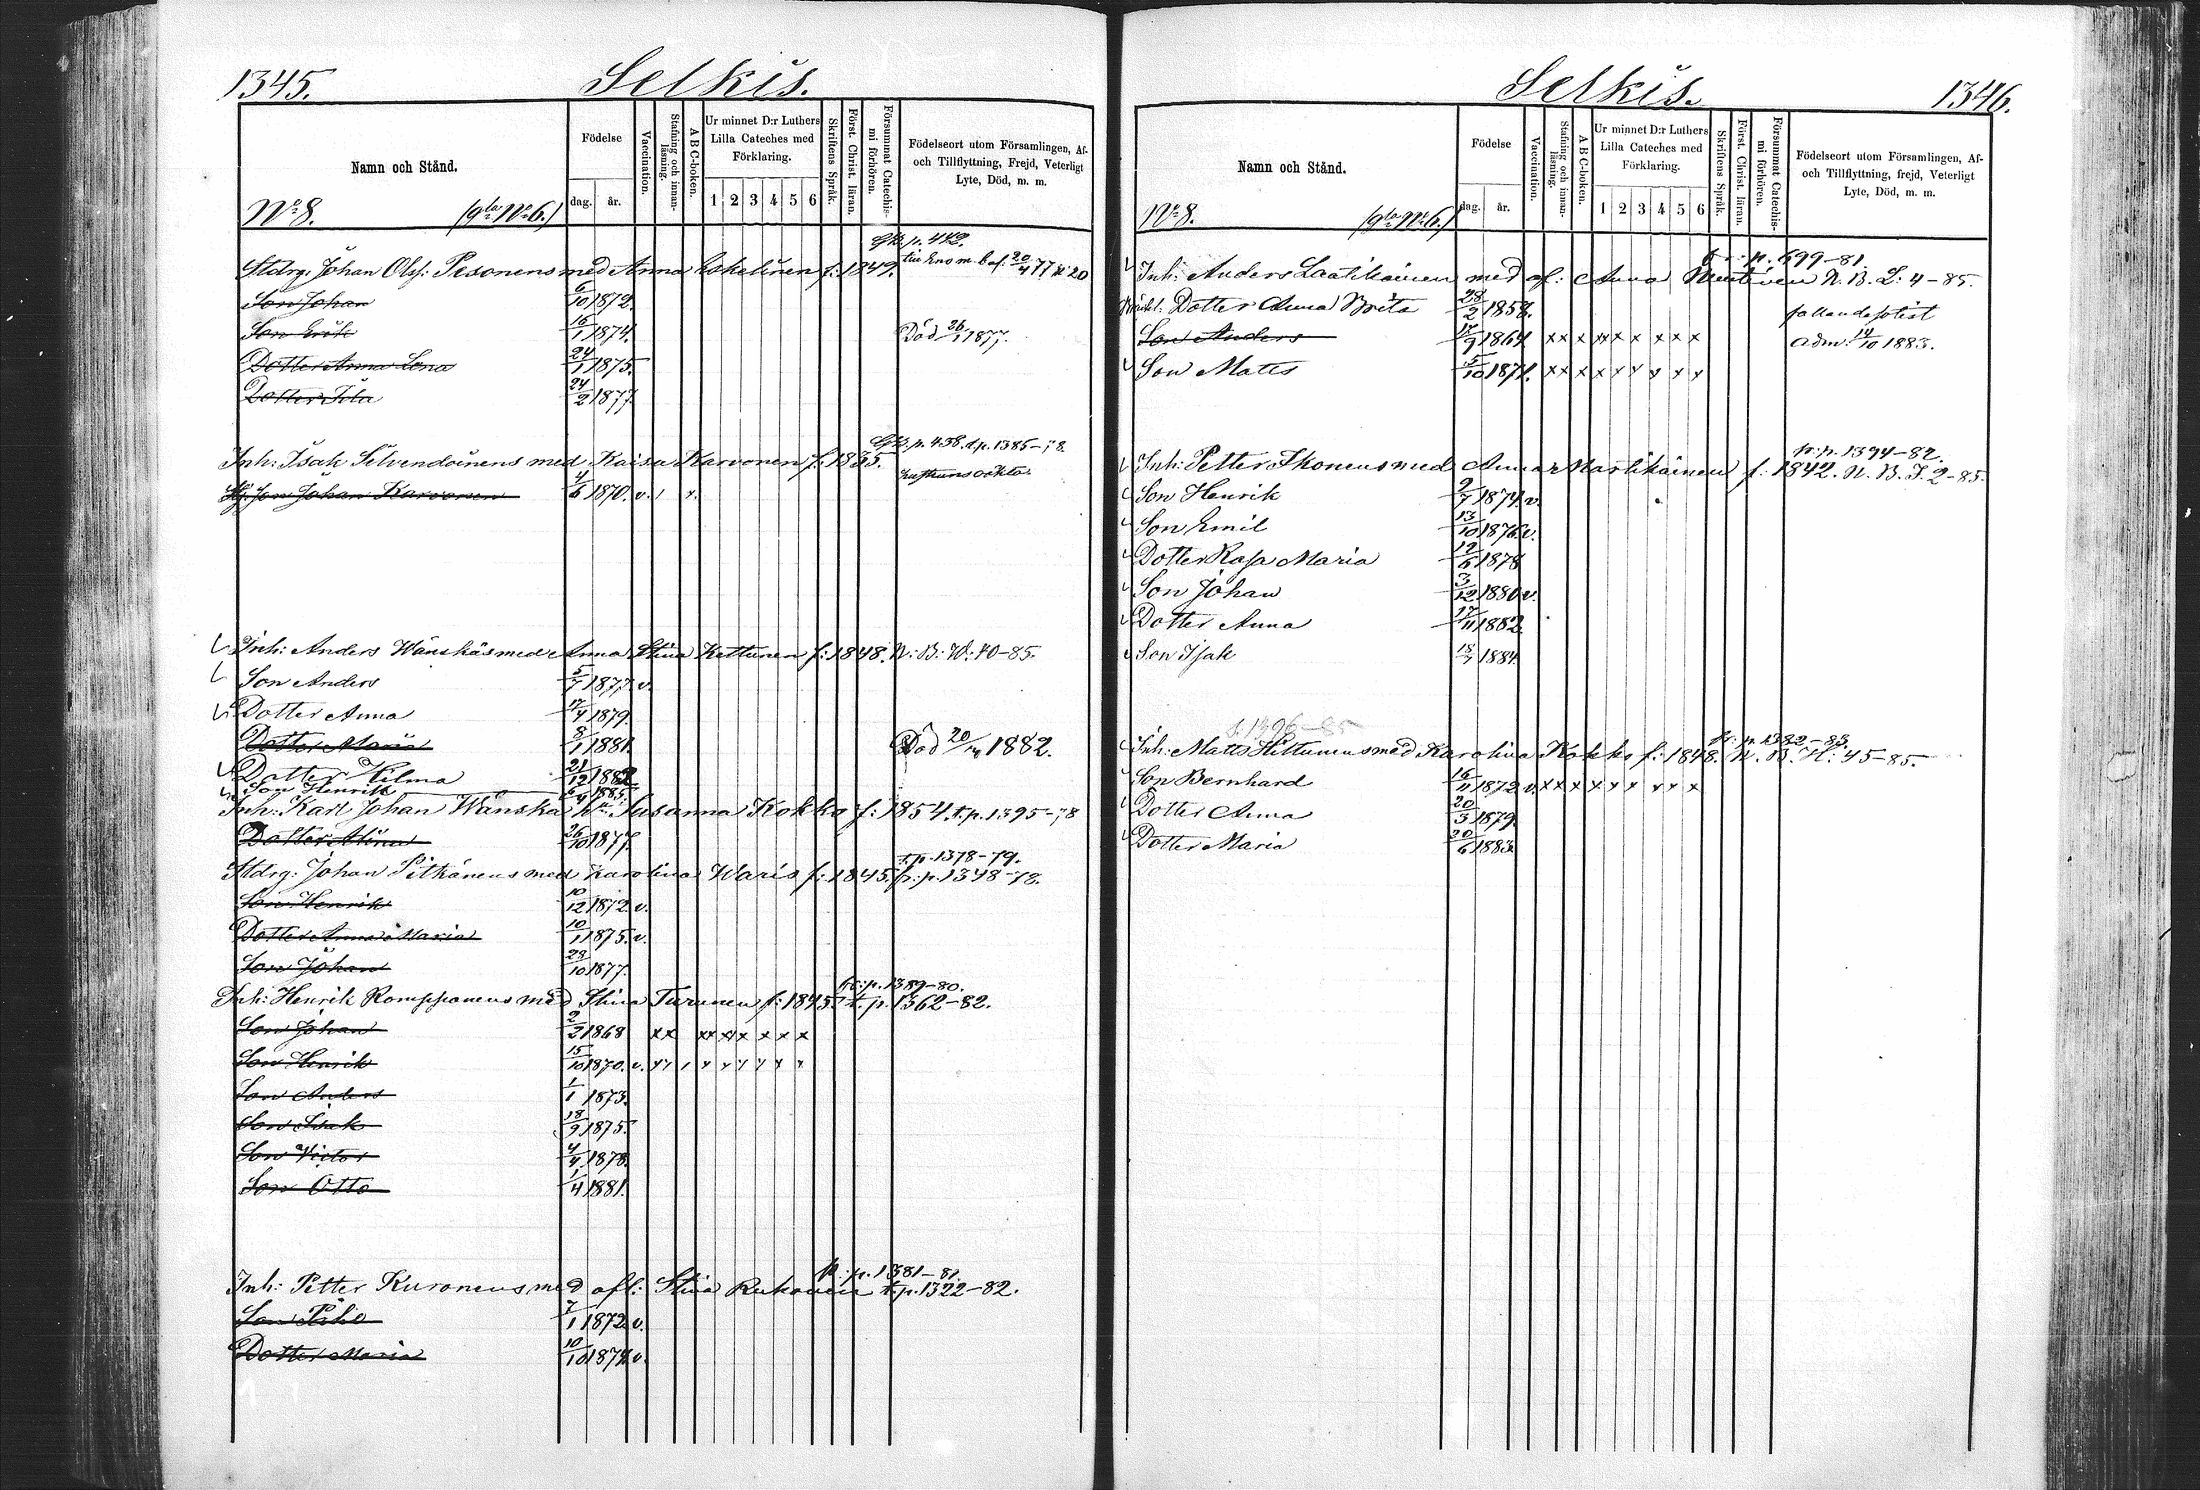 1345. Selkis.
Namn och Stånd. Födelse dag. år. Vaccination. Stafning och innan-läsning. A B C-boken. Ur minnet D:r Luthers Lilla Cateches med Förklaring. 1 2 3 4 5 6 Skriftens Språk. Först. Christ. läran. Försummat Catechismi förhören. Födelseort utom Församlingen, Af- och Tillflyttning, Frejd, Veterligt Lyte, Död, m. m.
N:o 8. (gla N:o 6.)
p. 442.
Stdrg: Johan Olsf: Pesonens med Anna f: 1849. 20/4 77 N:o 20
Son Johan 6/10 1872.
Son Erik 16/1 1874. Död 26/1 1877.
Dotter Anna Lena 24/1 1875.
Dotter Ida 24/2 1877.
p. 438. t.p. 1385-78.
Inh: Isak Silvendoinens med Kaisa Karvonen f: 1835.
Son Johan Karvonen 4/6 1870. v. 1 x.
Inh: Anders Wänskäs med Anna Stina Kettunen f: 1848. N: B: W: 40-85.
Son Anders 5/7 1877. v.
Dotter Anna 17/4 1879.
Dotter Maria 8/1 1881. Död 20/ 1882.
Dotter Hilma 21/12 1882
Son Henrik 6/4 1885.
Inh: Karl Johan Wänskä h:u Susanna Kokko f: 1854. t.p. 1395-78
Dotter Alina 26/10 1877.
t.p. 1378-79.
Stdrg: Johan Pitkänens med Karolina Waris f: 1845. fr: p. 1348-78.
Son Henrik 10/12 1872 v.
Dotter Anna Maria 10/1 1875. v.
Son Johan 23/10 1877.
fr: p. 1389-80.
Inh: Henrik Romppanens med Stina Turunen f: 1845. t. p. 1362-82.
Son Johan 2/2 1868 x x x x x x x x x
Son Henrik 15/10 1870. v. x x 1 x x x x x x
Son Anders 1/1 1873.
Son Isak 18/9 1875.
Son Victor 4/4 1878.
Son Otto 1/4 1881.
fr: p. 1381-81.
Inh: Petter Kuronens med afl: Stina t. p. 1322-82.
Son 7/1 1872. v.
Dotter Maria 10/10 1874. v.
Selkis. 1346.
Namn och Stånd. Födelse dag. år. Vaccination. Stafning och innan-läsning. A B C-boken. Ur minnet D:r Luthers Lilla Cateches med Förklaring. 1 2 3 4 5 6 Skriftens Språk. Först. Christ. läran. Försummat Catechismi förhören. Födelseort utom Församlingen, Af- och Tillflyttning, frejd, Veterligt Lyte, Död, m. m.
N:o 8. (gla N:o 6.)
fr: p. 699-81.
Inh: Anders Laatikainen med af: Anna N. B. L: 4-85.
Dotter Anna Brita 28/2 1858. fallandesotist
Son Anders 17/9 1864 x x x x x x x x x adm. 14/10 1883.
Son Matts 5/10 1871. x x x x x x x x x
fr: p. 1394-82.
Inh: Petter Ikonens med Anna Martikainen f: 1842. N. B. I. 2-85.
Son Henrik 9/7 1874. v.
Son Emil 13/10 1876. v.
Dotter Kasa Maria 12/6 1878
Son Johan 3/12 1880. v.
Dotter Anna 17/11 1882
Son Isak 18/7 1884
t. 1396-85
fr: p. 1382-83.
Inh: Matts Hiltunens med Karolina Kokko f: 1848. N. B. H: 45-85.
Son Bernhard 16/11 1872 v. x x x x x x x x x
Dotter Anna 20/3 1879
Dotter Maria 20/6 1883